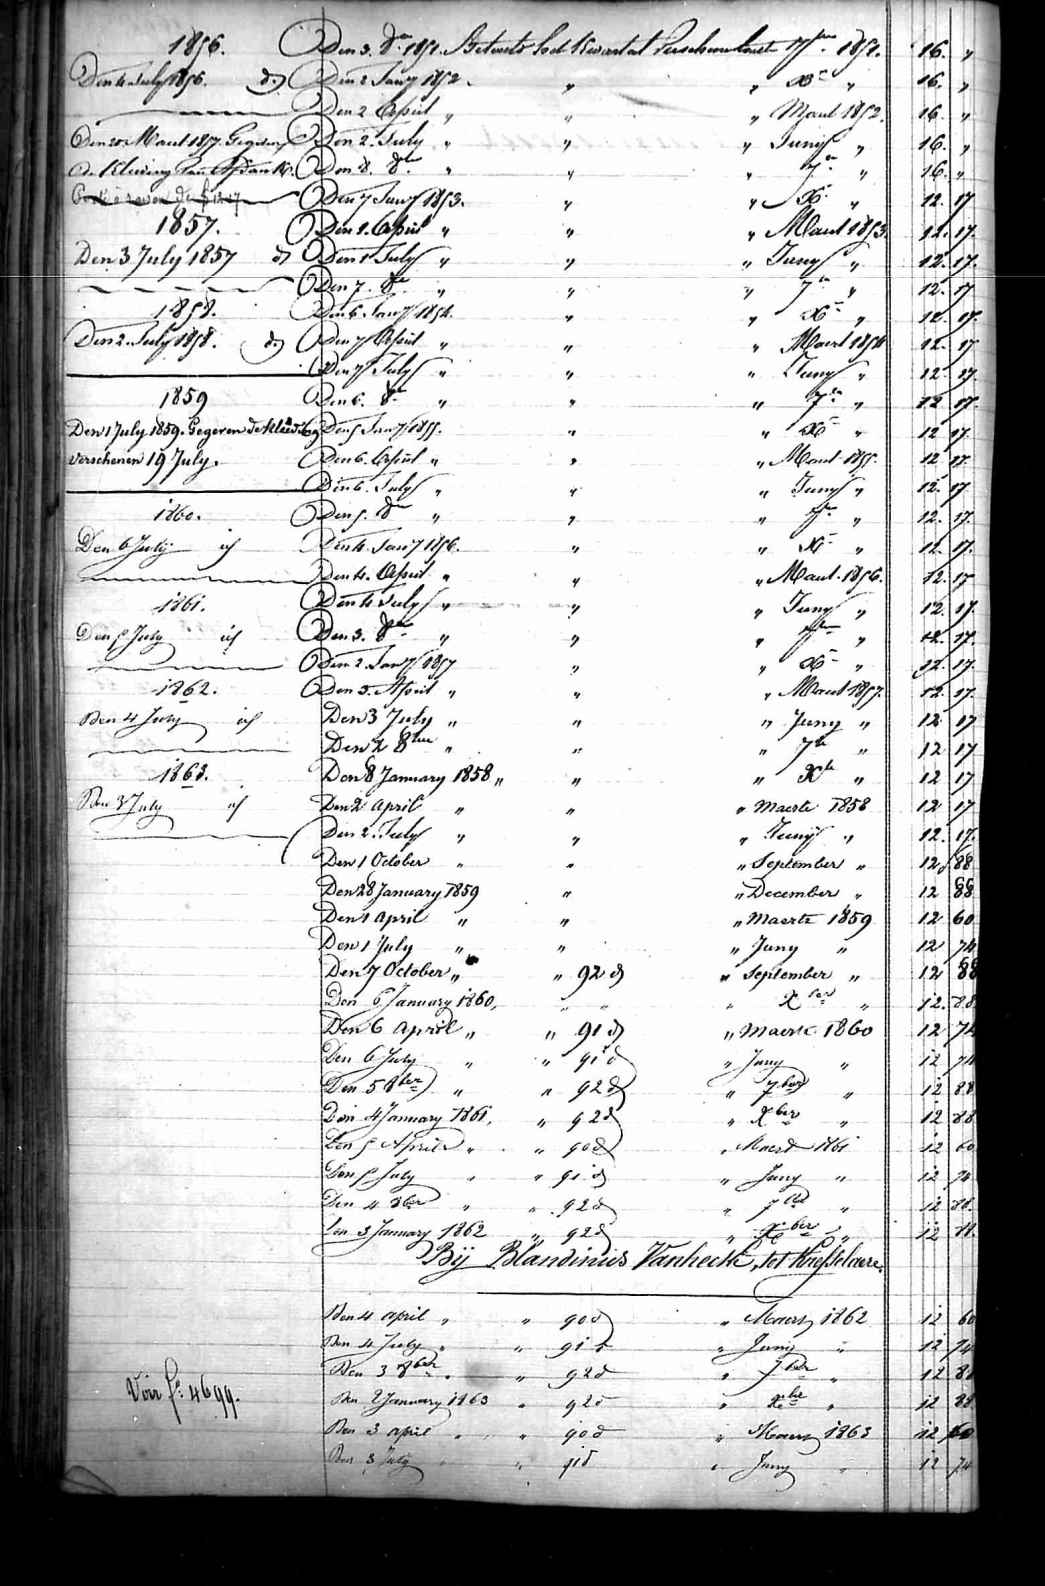 1856.
Den 4 July 1856. d.
Den 20 Maert 1857. Gegeven
de Kleeding
1857.
Den 3 July 1857 d
1858.
Den 2. July 1858. d.
1859
Den 1 July 1859. Gegeven de kleeding
verschenen 19 July.
1860.
Den 6 July id
1861.
Den 5 July id
1862.
Den 4 July id
1863.
Den 3 July id
Voir f° 4699.
Den 3. 8re 1851. Betaelt het Kwartael verschenen 7bre 1851. 16. "
Den 2 Jany 1852. " " Xre " 16. "
Den 2 April " " " Maert 1852. 16. "
Den 2. July " " " Juny " 16. "
Den 8. 8re " " " 7re " 16. "
Den 7 Jany 1853. " " Xre " 12. 17
Den 1. April " " " Maert 1853. 12. 17.
Den 1 July " " " Juny " 12. 17.
Den 7. 8re " " " 7re " 12. 17
Den 6. Jany 1854. " " Xre " 12. 17.
Den 7 April " " " Maert 1854 12. 17
Den 7 July " " " Juny " 12. 17.
Den 6. 8re " " " 7re " 12 17.
Den 5 Jany 1855. " " Xre " 12 17.
Den 6. April " " " Maert 1855. 12 17.
Den 6. July " " " Juny " 12. 17
Den 5. 8re " " " 7re " 12. 17.
Den 4. Jany 1856. " " Xre " 12. 17.
Den 4. April " " " Maert. 1856. 12. 17
Den 4 July " " " Juny " 12. 17.
Den 3. 8re " " " 7re " 12. 17.
Den 2. Jany 1857 " " Xre " 12. 17.
Den 3. April " " " Maert 1857. 12. 17.
Den 3 July " " " Juny " 12 17
Den 2 8bre " " " 7re " 12 17
Den 8 January 1858 " " " Xre " 12 17
Den 2 april " " " Maerte 1858 12 17
Den 2. July " " " Juny " 12. 17.
Den 1 October " " " September " 12 88
Den 28 January 1859 " " December " 12 88
Den 1 april " " " Maerte 1859 12 60
Den 1 July " " " Juny " 12 74
Den 7 October " " 92 d " September " 12 88
Den 6 January 1860, " " " Xber " 12. 88
Den 6 April " " 91 d " maerte 1860 12 74
Den 6 July " " 91 d " Juny " 12 74
Den 5 8ber " " 92 d " 7ber " 12 88
Den 4 January 1861, " 92 d " Xber " 12 88
Den 5 April " " 90 d " Maert 1861 12 60
Den 5 July " " 91 d " Juny " 12 74
Den 4 8ber " " 92 d " 7ber " 12 88.
Den 3 January 1862 " 92 d " Xber " 12 88.
Bij Blandinus Vanhecke, tot Knesselaere.
Den 4 april " " 90 d " Maert 1862 12 60
Den 4 July " " 91 d " Juny " 12 74
Den 3 8ber " " 92 d " 7ber " 12 88
Den 2 January 1863 " 92 d " Xbre " 12 88
Den 3 april " " 90 d " Maert 1863 12 60
Den 3 July " " 91 d " Juny " 12 74